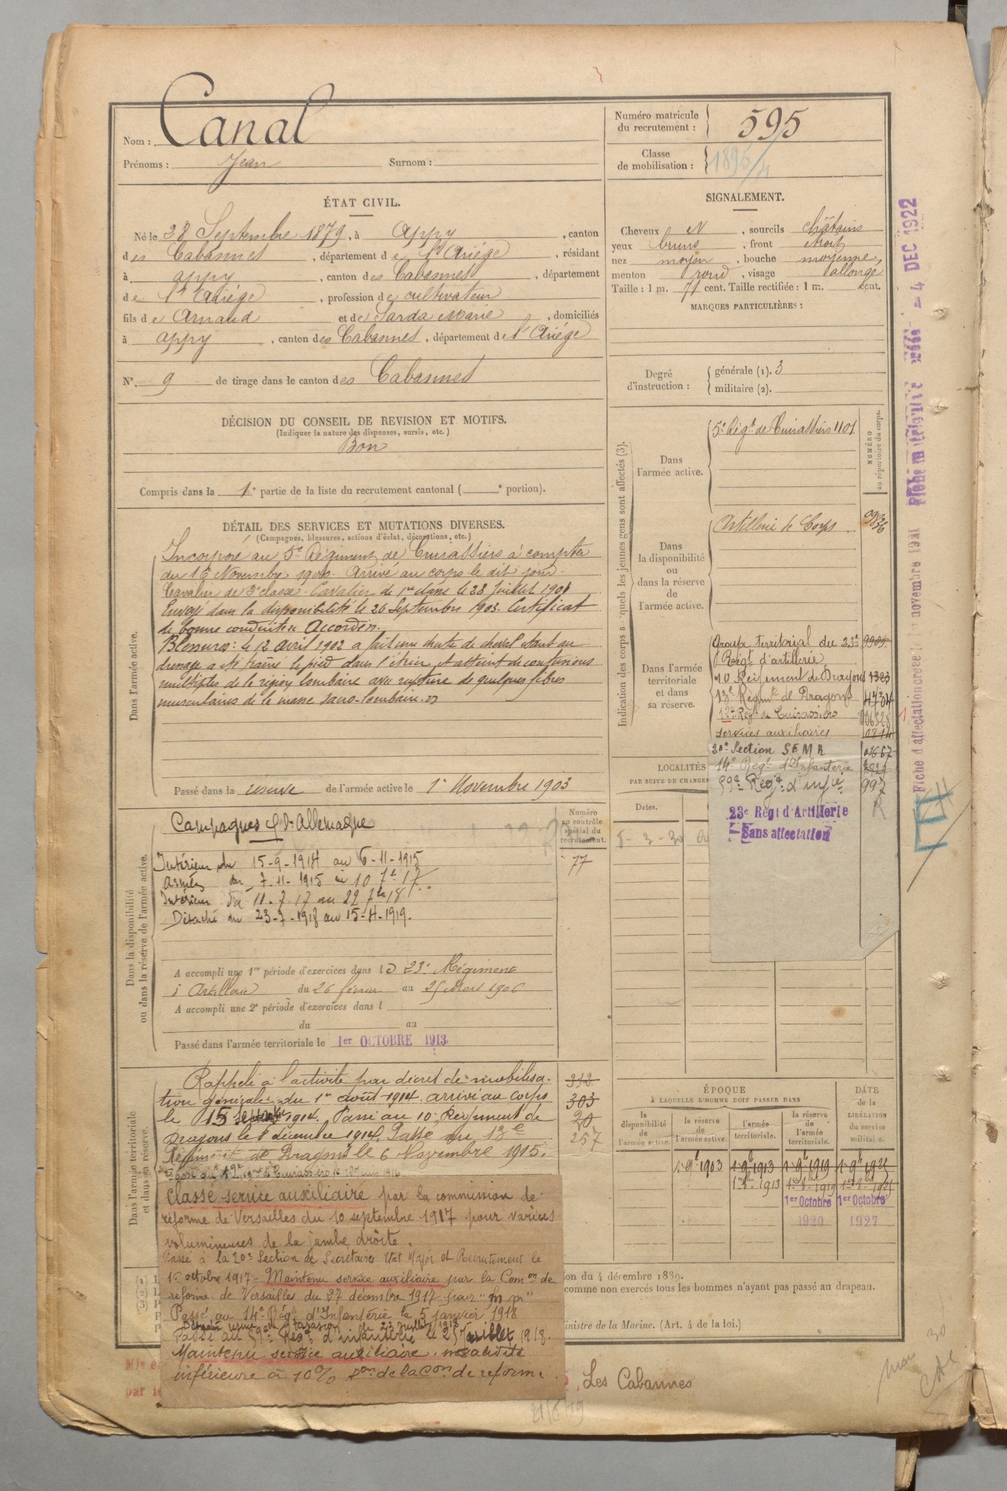 Nom : Canal
Prénoms : Jean Surnom :
Numéro matricule du recrutement : 595
Classe de mobilisation :
ÉTAT CIVIL.
Né le 28 Septembre 1879, à Appy, canton
des Cabannes, département de l'Ariége, résidant
à appy, canton des Cabannes, département
de l'Ariége, profession de cultivateur
fils de Arnaud et de Sarda Marie, domiciliés
à appy, canton des Cabannes, département de l'Ariége
N° 9 de tirage dans le canton des Cabannes
SIGNALEMENT.
Cheveux N, sourcils châtains
yeux bruns, front étroit
nez moyen, bouche moyenne,
menton rond, visage allongé
Taille : 1 m. 71 cent. Taille rectifiée : 1 m. cent.
MARQUES PARTICULIÈRES :
Degré d'instruction : générale (1). 3
militaire (2).
DÉCISION DU CONSEIL DE REVISION ET MOTIFS.
(Indiquer la nature des dispenses, sursis, etc.)
Bon
Compris dans la 1e partie de la liste du recrutement cantonal ( e portion).
DÉTAIL DES SERVICES ET MUTATIONS DIVERSES.
(Campagnes, blessures, actions d'éclat, décorations, etc.)
Dans l'armée active.
Incorporé au 5e Régiment de Cuirassiers à compter
du 16 Novembre 1900. Arrivé au corps le dit jour.
Cavalier de 2e classe. Cavalier de 1re classe le 28 Juillet 1901
Envoyé dans la disponibilité le 26 Septembre 1903. Certificat
de bonne conduite Accordé.
Blessures : le 12 avril 1902 a fait une chute de cheval étant au
dressage a été trainé le pied dans l'étrier, et atteint de contusions
multiples de la région lombaire avec rupture de quelques fibres
musculaires de la masse sacro-lombaire.
Passé dans la réserve de l'armée active le 1er Novembre 1903
Indication des corps auxquels les jeunes gens sont affectés (3).
NUMÉRO au répertoire du corps.
Dans l'armée active.
5e Régt de Cuirassiers 1101
Dans la disponibilité ou dans la réserve de l'armée active.
Artillerie de Corps
Dans l'armée territoriale et dans sa réserve.
Groupe territorial du 23e
Régt d'artillerie
10 Régiment de Dragons 1323
13e Régimt de Dragons
12e Régt de Cuirassiers
services auxiliaires
20e Section S E M R
14e Régt d'Infanterie
59e Régt d'infie 992
23e Régt d'Artillerie
Sans affectation
LOCALITÉS
PAR SUITE DE CHANGE
Dates.
5-3-30
Dans la disponibilité ou dans la réserve de l'armée active.
Numéro au contrôle spécial du recrutement.
77
Campagnes c/ l'Allemagne
Intérieur du 15-9-1914 au 6-11-1915
Armées du 7-11-1915 au 10 7bre 17.
Intérieur du 11-9-17 au 22 7t 18
Détaché du 23-7-1918 au 15-4-1919.
A accompli une 1re période d'exercices dans le 23e Régiment
d'Artillerie du 26 février au 25 Mars 1906
A accompli une 2e période d'exercices dans l
du au
Passé dans l'armée territoriale le 1er OCTOBRE 1913
Dans l'armée territoriale et dans sa réserve.
Rappelé à l'activité par décret de mobilisa-
tion générale du 1er août 1914. arrivé au corps
le 15 septembre 1914. Passé au 10e Régiment de
Dragons le 8 décembre 1914. Passé au 13e
Régiment de Dragons le 6 Novembre 1915.
312
303
20
257
Classé service auxiliaire par la commission de
réforme de Versailles du 10 septembre 1917 pour varices
volumineuses de la jambe droite.
Passé à la 20e Section de Secrétaires Etat Major et Recrutement le
1er octobre 1917 - Maintenu service auxiliaire par la Comon de
réforme de Versailles du 27 décembre 1917 pour "m m"
Passé au 14e Régt d'Infanterie le 5 janvier 1918
Passé au 59e Régt d'infanterie le 25 juillet 1918.
Maintenu service auxiliaire. invalidité
inférieure à 10% de la Con de réforme.
ÉPOQUE
À LAQUELLE L'HOMME DOIT PASSER DANS
la disponibilité de l'armée active.
la réserve de l'armée active.
l'armée territoriale.
la réserve de l'armée territoriale.
DATE de la LIBÉRATION du service militaire.
1er Octobre 1er Octobre
1920 1927
on du 4 décembre 1889.
comme non exercés tous les hommes n'ayant pas passé au drapeau.
inistre de la Marine. (Art. 4 de la loi.)
, Les Cabannes
4 DEC 1922
Fiche d'affectation créée le novembre 1921